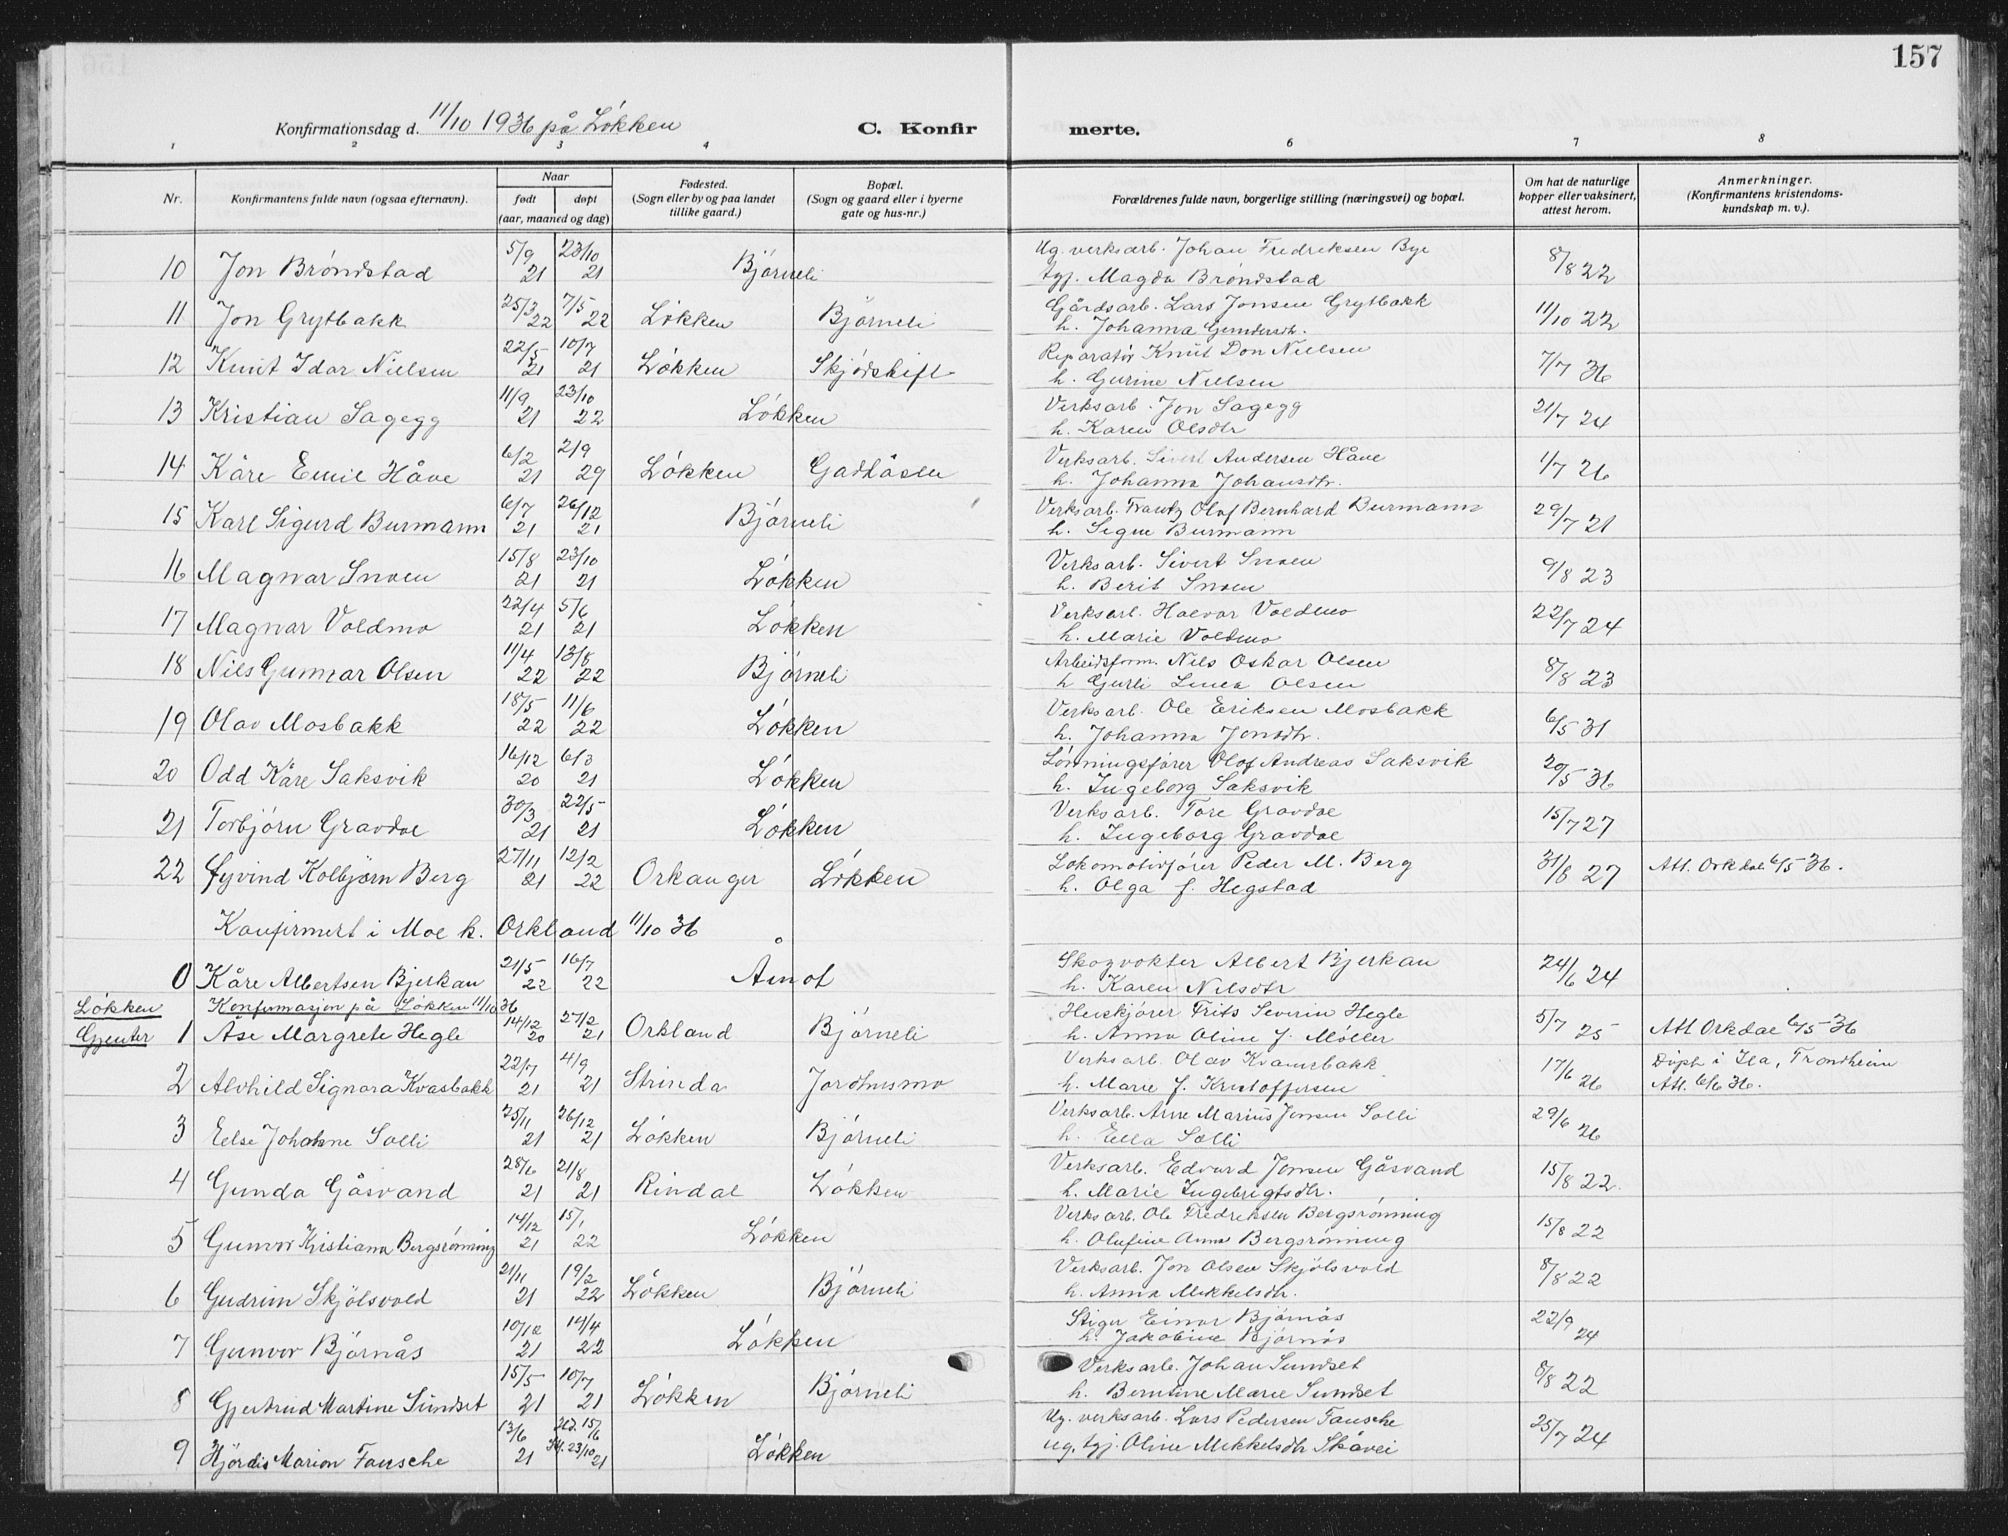 157
Konfirmationsdag d. 11/10 1936 på Løkken C. Konfirmerte.
1 2 3 4 6 7 8
Nr. Konfirmantens fulde navn (ogsaa efternavn). Naar født døpt (aar, maaned og dag) Fødested. (Sogn eller by og paa landet tillike gaard.) Bopæl. (Sogn og gaard eller i byerne gate og hus-nr.) Forældrenes fulde navn, borgerlige stilling (næringsvei) og bopæl. Om hat de naturlige kopper eller vaksinert, attest herom. Anmerkninger. (Konfirmantens kristendomskundskap m. v.).
10 Jon Brøndstad 5/9 21 23/10 21 Bjørneli Ug. verksarb. Johan Fredriksen Bye 8/8 22
tgj. Magda Brøndstad
11 Jon Grytbakk 25/3 22 7/5 22 Løkken Bjørneli Gårdsarb. Lars Jonsen Grytbakk 11/10 22
h. Johanna Gundersdr.
12 Knut Idar Nielsen 22/5 21 10/7 21 Løkken Skjødskift Reparatør Knut Don Nielsen 7/7 36
h. Gurine Nielsen
13 Kristian Sagegg 11/9 21 23/10 22 Løkken Verksarb. Jon Sagegg 21/7 24
h. Karen Olsdtr
14 Kåre Emil Håve 6/2 21 2/9 29 Løkken Gadåsen Verksarb. Sivert Andersen Håve 1/7 26
h. Johanna Johansdtr.
15 Karl Sigurd Burmann 6/7 21 26/12 21 Bjørneli Verksarb. Frantz Olaf Bernhard Burmann 29/7 21
h. Signe Burmann
16 Magnar Snoen 15/8 21 23/10 21 Løkken Verksarb. Sivert Snoen 9/8 23
h. Berit Snoen
17 Magnar Voldmo 22/4 21 5/6 21 Løkken Verksarb. Halvor Voldmo 22/7 24
h. Marie Voldmo
18 Nils Gunnar Olsen 11/4 22 13/8 22 Bjørneli Arbeidsform. Nils Oskar Olsen 8/8 23
h Gurli Linea Olsen
19 Olav Mosbakk 18/5 22 11/6 22 Løkken Verksarb. Ole Eriksen Mosbakk 6/5 31
h. Johanna Jonsdtr.
20 Odd Kåre Saksvik 16/12 20 6/3 21 Løkken Lønningsfører Olaf Andreas Saksvik 29/5 36
h. Ingeborg Saksvik
21 Torbjørn Gravdal 30/3 21 22/5 21 Løkken Verksarb. Tore Gravdal 15/7 27
h. Ingeborg Gravdal
22 Øyvind Kolbjørn Berg 27/11 21 12/2 22 Orkanger Løkken Lokomotivfører Peder M. Berg 31/8 27 Att. Orkdal 6/5 36.
h. Olga f. Hegstad
Konfirmert i Moe k. Orkland 11/10 36
0 Kåre Albertsen Bjerkan 21/5 22 16/7 22 Åmot Skogvokter Albert Bjerkan 24/6 24
h. Karen Nilsdtr
Løkken Konfirmasjon på Løkken 11/10 36
Gjenter 1 Åse Margrete Hegle 14/12 20 27/2 21 Orkland Bjørneli Heiskjører Frits Severin Hegle 5/7 25 Att Orkdal 6/5 36
h. Anna Oline f. Møller
2 Alvhild Signora Kvasbakk 22/7 21 4/9 21 Strinda Jordhusmo Verksarb. Olav Kvamsbakk 17/6 26 Døpt i Ila, Trondheim
h. Marie f. Kristoffersen Att. 6/6 36.
3 Else Johanne Solli 25/11 21 26/12 21 Løkken Bjørneli Verksarb. Arne Marius Jensen Solli 29/6 26
h. Ella Solli
4 Gunda Gåsvand 28/6 21 21/8 21 Rindal Løkken Verksarb. Edvard Jonsen Gåsvand 15/8 22.
h. Marie Ingebrigtsdtr.
5 Gunvor Kristiana Bergsrønning 14/12 21 15/1 22 Løkken Verksarb. Ole Fredriksen Bergsrønning 15/8 22
h. Olufine Anna Bergsrønning
6 Gudrun Skjølsvold 21/11 21 19/2 22 Løkken Bjørneli Verksarb. Jon Olsen Skjølsvold 8/8 22
h. Anna Mikkelsdtr.
7 Gunvor Bjørnås 10/12 21 14/4 22 Løkken Stiger Einar Bjørnås 22/9 24
h. Jakobine Bjørnås
8 Gjertrud Martine Sundset 15/5 21 10/7 21 Løkken Bjørneli Verksarb. Johan Sundset 8/8 22
h. Bernine Marie Sundset
9 Hjørdis Marion Fausche 13/6 21 15/6 23/10 21 Løkken Ug. verksarb. Lars Pedersen Fausche 25/7 24
ug. tgj. Oline Mikkelsdtr Skåvei